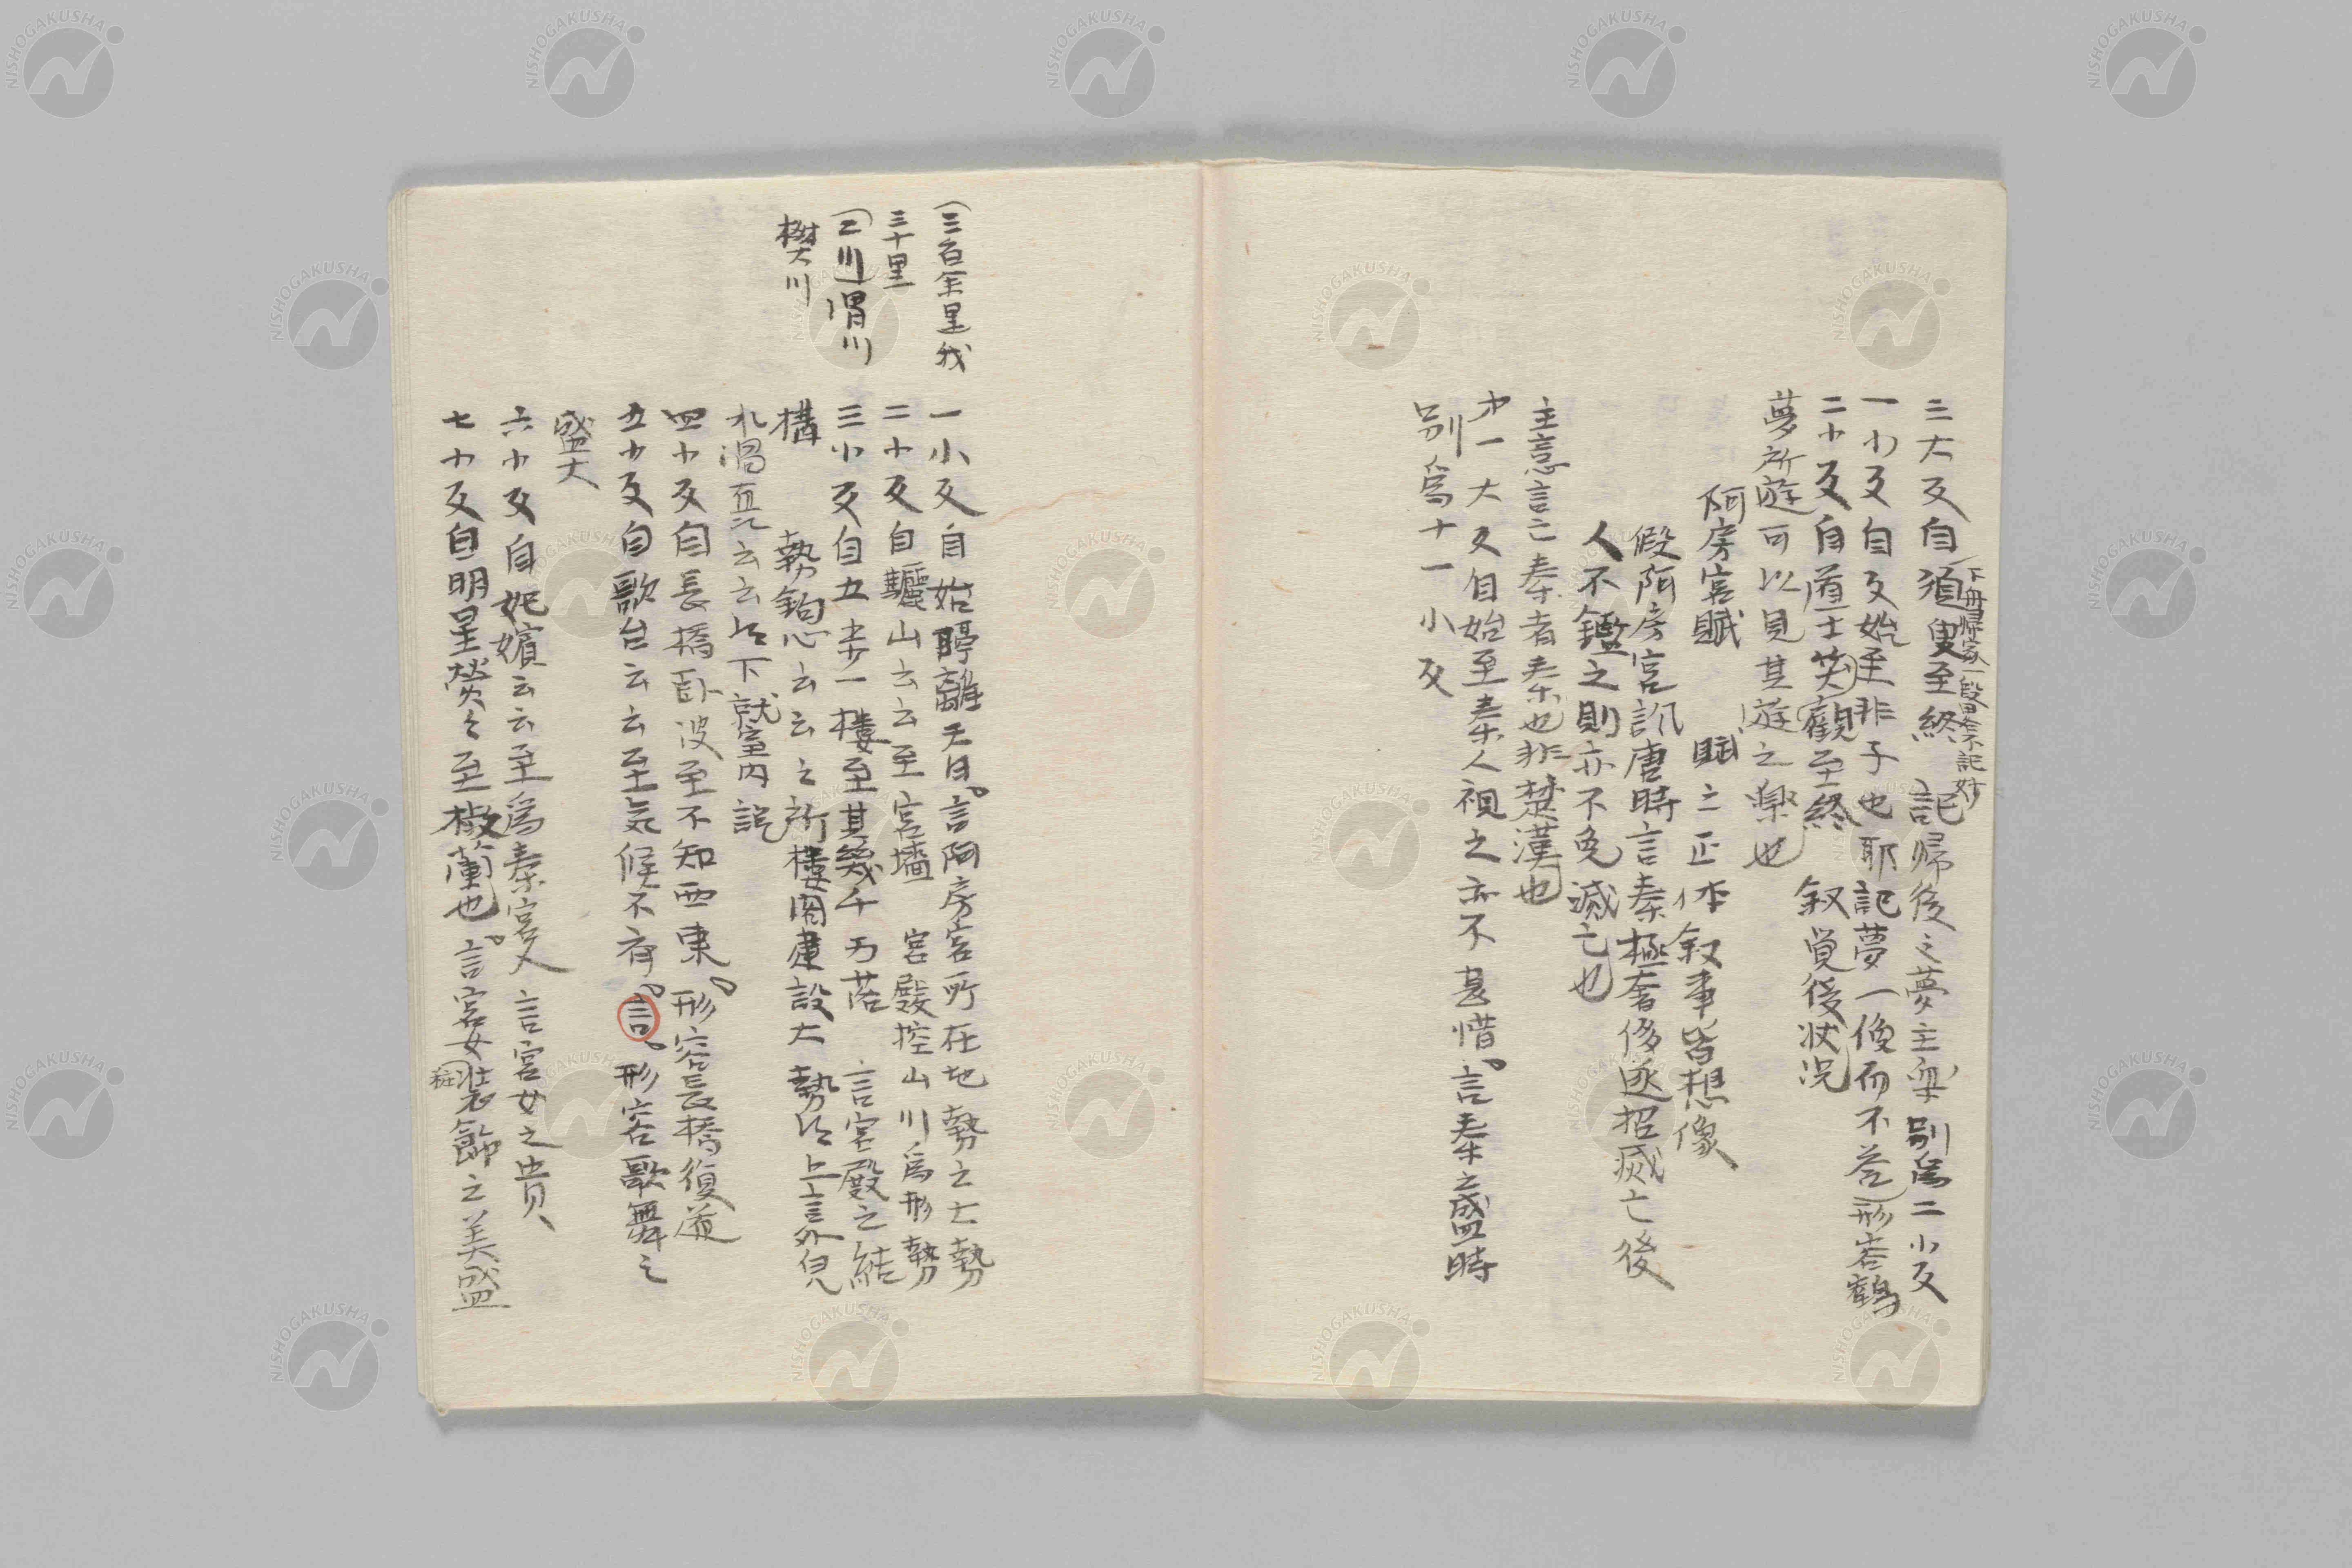 三大反自須臾至終 記帰後之夢主楽 別為二小反
下舟帰家一段畧不記妙
一小反自反始至非子也耶 記夢一俊而不答 形容鶴
二小反自道士笑観至終 叙覚後状况
夢所遊可以見其遊之樂也
阿房宮賦 賦之正体 叙事皆想像
假阿房宮訊唐時言秦極奢侈遂招滅亡後
人不鑑之則亦不免滅亡也
主意言亡秦者秦也非楚漢也
才一大反自始至秦人視之亦不甚惜。言秦之盛時
別為十一小反
一小反自始至隔離天日。言阿房宮所在地勢之土勢
二小反自驪山云云至宮墻 宮殿控山川為形勢
三小反自五步一樓至其幾千万落 言宮殿之結
構 勢鉤心云云之所 樓閣建設大勢 上言外皃
云云 下就室內説
四小反自長橋臥波至不知西東。形容長橋復道
五小反自歌台云云至気候不斉。言。形容歌舞之
盛大
六小反自妃嬪云云至為秦宮人 言宮女之貴
七小反自明星熒々至椒蘭也。言宮女装飾之美盛
粧
三百余里我
三十里
二川 渭川
樊川